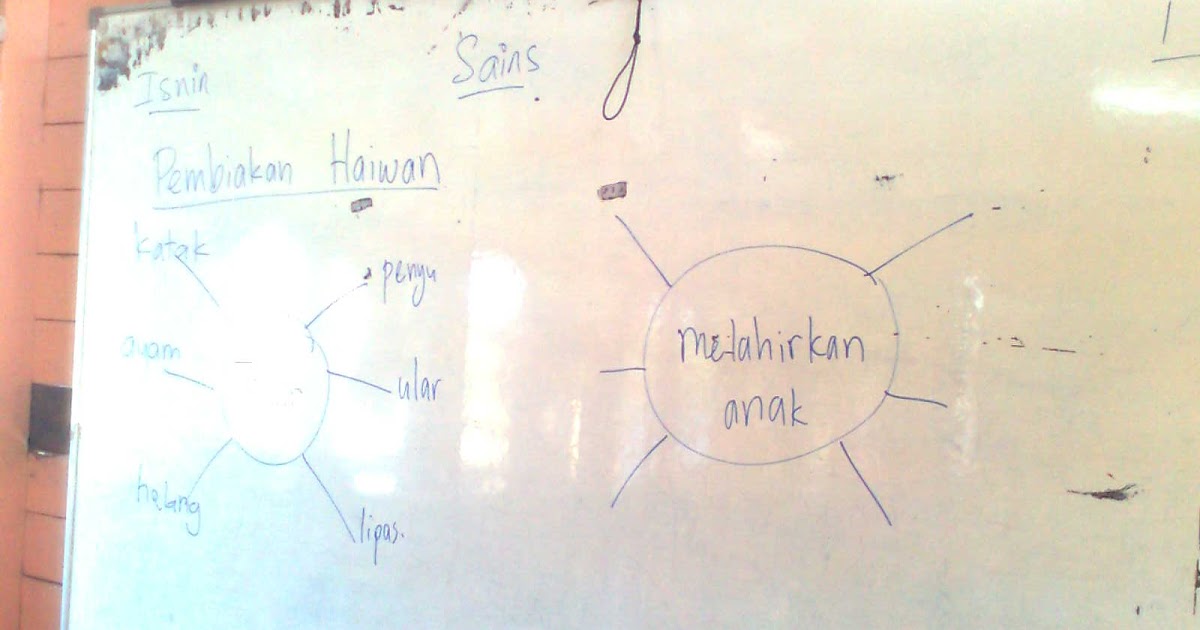 Isnin
Sains
Pembiakan Haiwan
katak
penyu
ayam
ular
helang
lipas.
melahirkan
anak